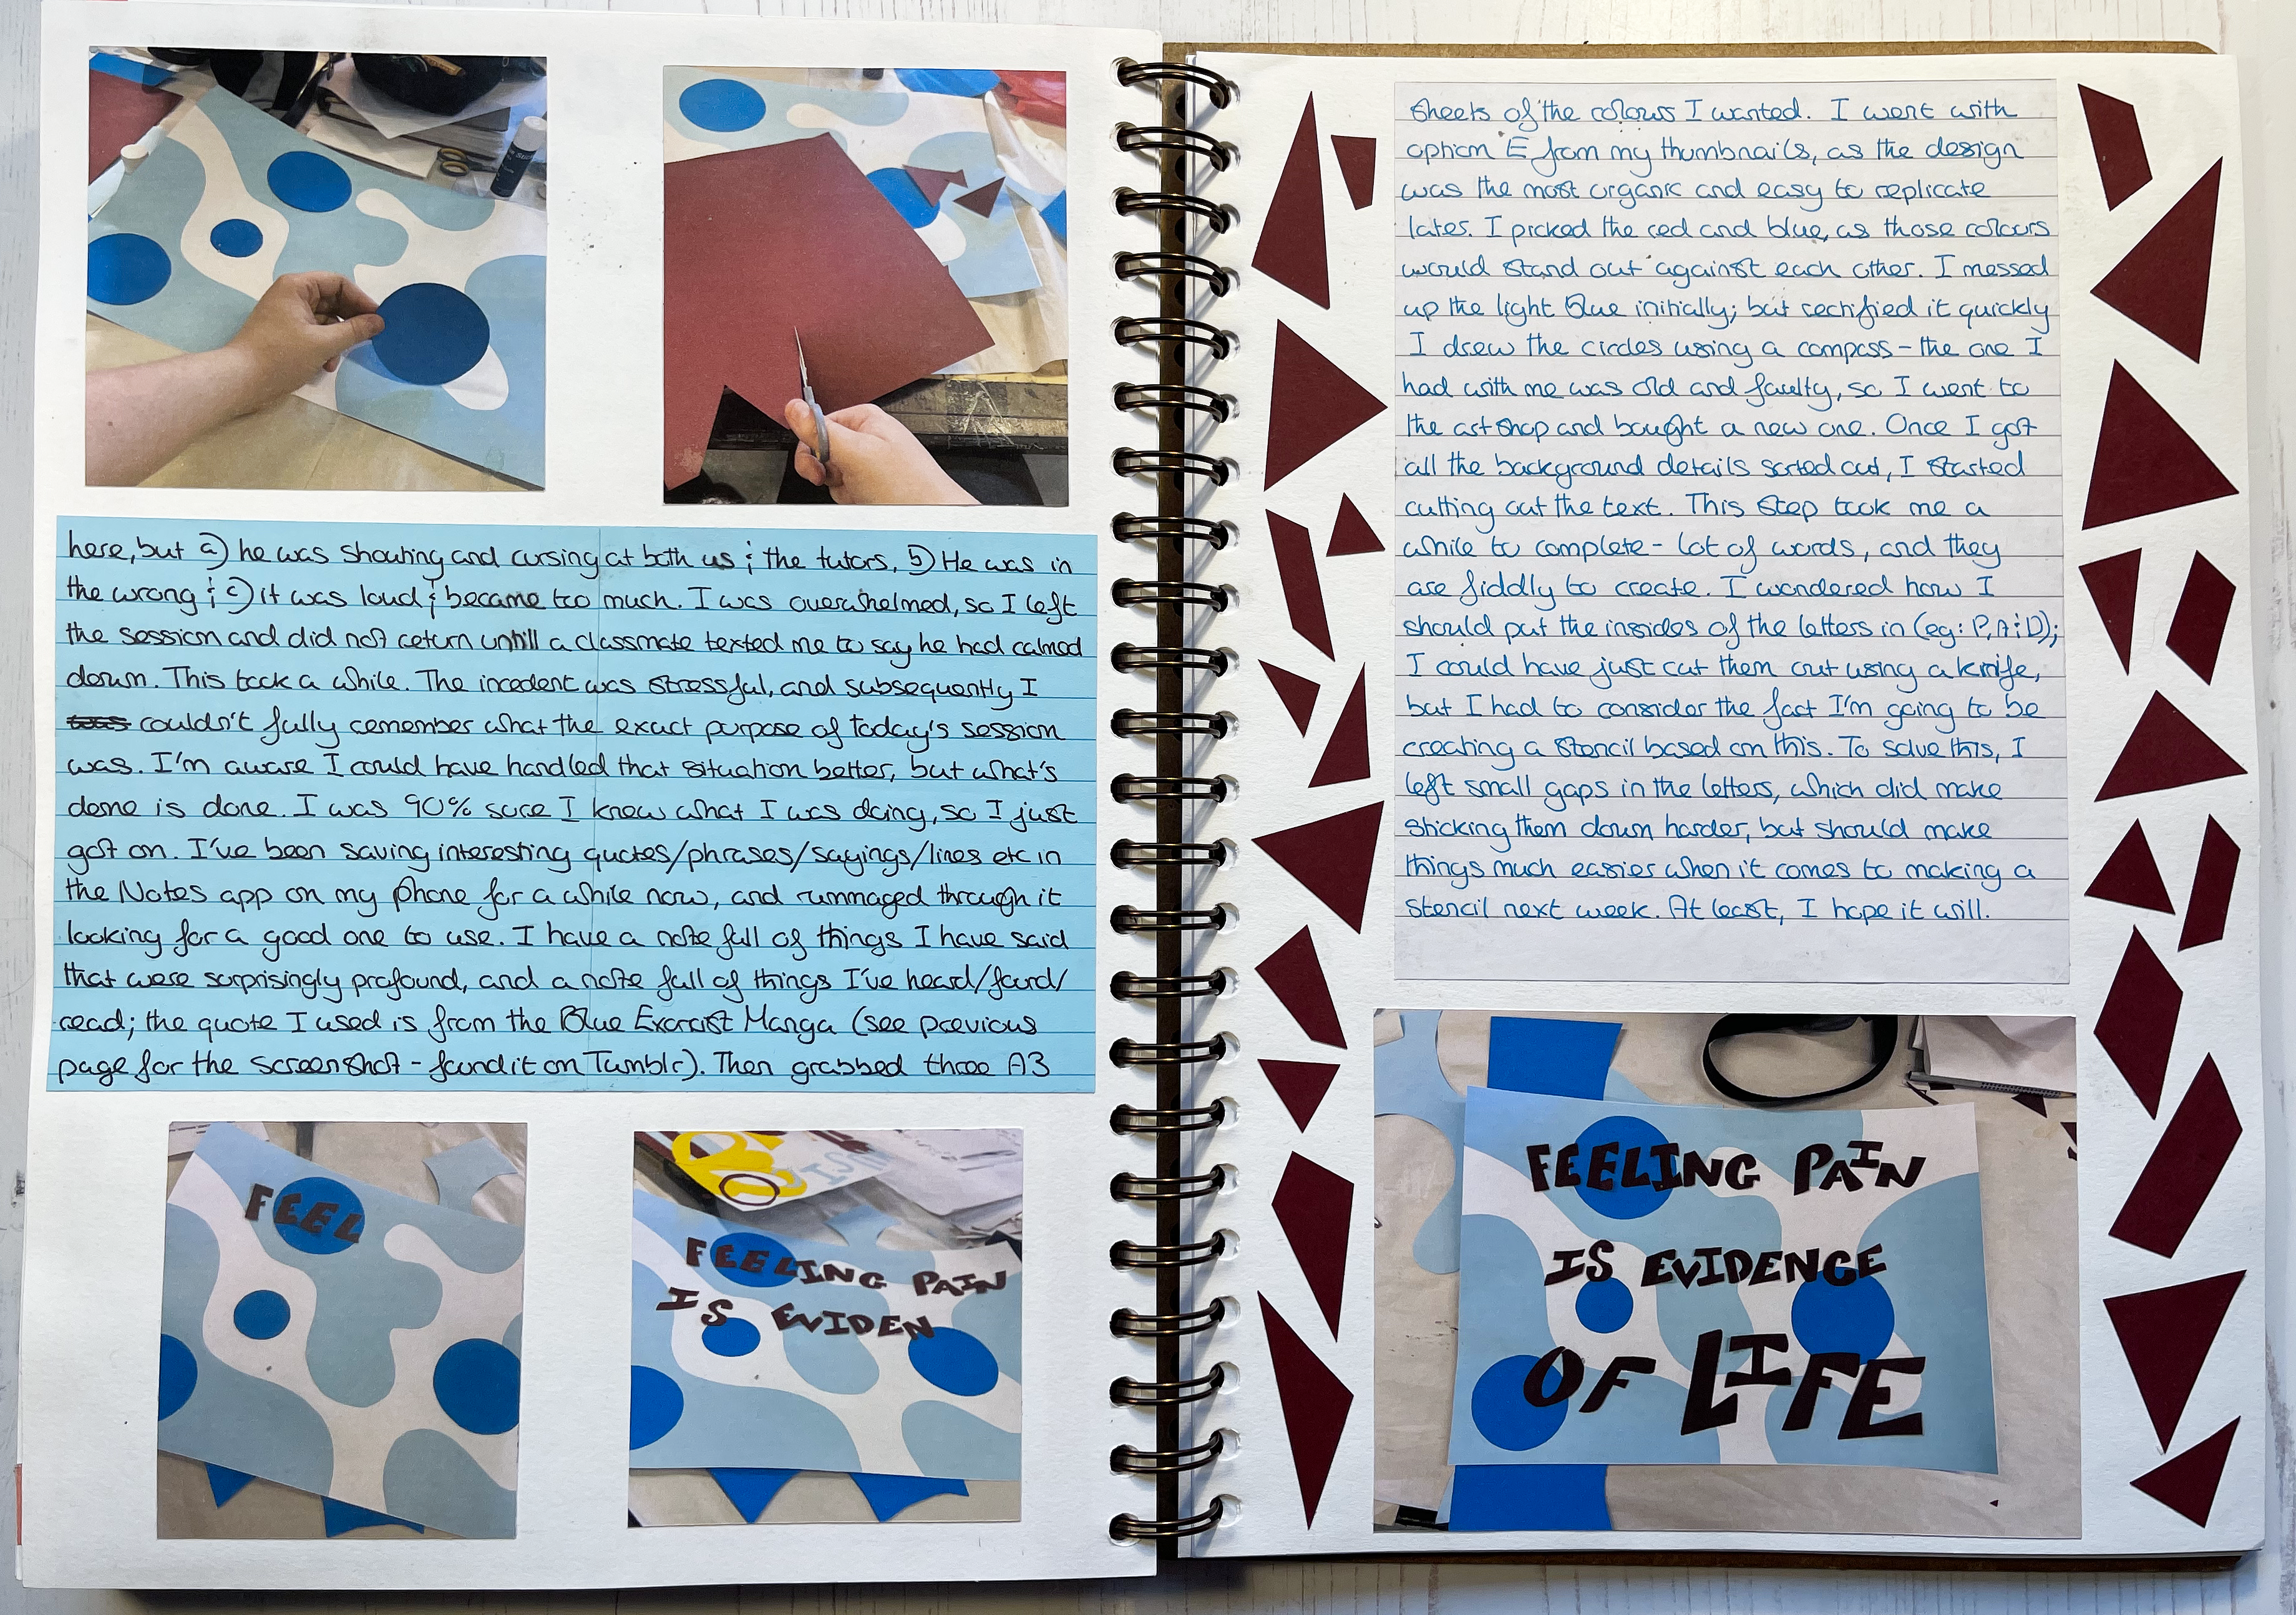 here, but a) he was shouting and cursing at both us & the tutors, b) He was in
the wrong & c) it was loud & became too much. I was overwhelmed, so I left
the session and did not return untill a classmate texted me to say he had calmed
down. This took a while. The incedent was stressful, and subsequently I
couldn't fully remember what the exact purpose of today's session
was. I'm aware I could have handled that situation better, but what's
done is done. I was 90% sure I knew what I was doing, so I just
got on. I've been saving interesting quotes/phrases/sayings/lines etc in
the Notes app on my phone for a while now, and rummaged through it
looking for a good one to use. I have a note full of things I have said
that were surprisingly profound, and a note full of things I've heard/found/
read; the quote I used is from the Blue Exorcist Manga (see previous
page for the screenshot - found it on Tumblr). Then grabbed three A3
FEEL
FEELING PAIN
IS EVIDEN
sheets of the colours I wanted. I went with
option E from my thumbnails, as the design
was the most organic and easy to replicate
later. I picked the red and blue, as those colours
would stand out against each other. I messed
up the light blue initially; but rectified it quickly
I drew the circles using a compass - the one I
had with me was old and faulty, so I went to
the art shop and bought a new one. Once I got
all the background details sorted out, I started
cutting out the text. This step took me a
while to complete - lot of words, and they
are fiddly to create. I wondered how I
should put the insides of the letters in (eg: P, A & D);
I could have just cut them out using a knife,
but I had to consider the fact I'm going to be
creating a stencil based on this. To solve this, I
left small gaps in the letters, which did make
sticking them down harder, but should make
things much easier when it comes to making a
stencil next week. At least, I hope it will.
FEELING PAIN
IS EVIDENCE
OF LIFE